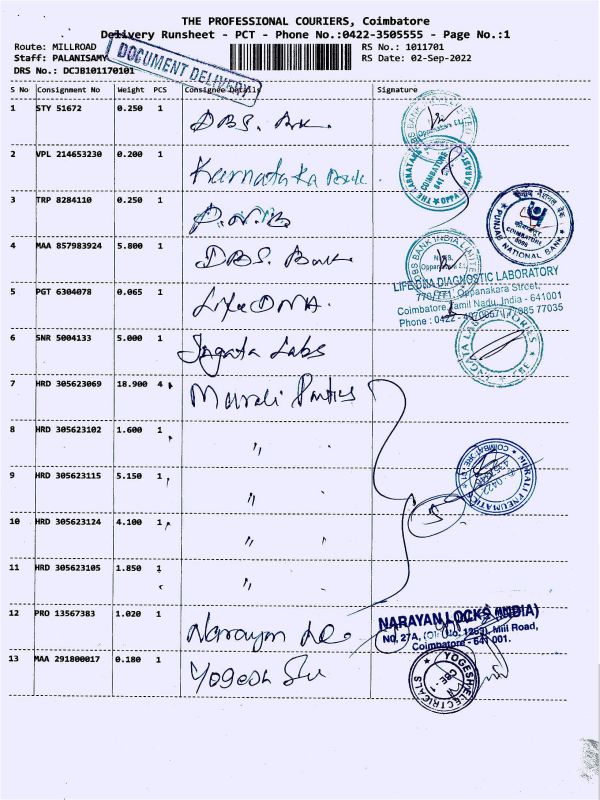 THE PROFESSIONAL COURIERS, Coimbatore
Delivery Runsheet - PCT - Phone No.:0422-3505555 - Page No.:1
Route: MILLROAD RS No.: 1011701
Staff: PALANISAMY RS Date: 02-Sep-2022
DRS No.: DCJB101170101
DOCUMENT DELIVERY
S No Consignment No Weight PCS Consignee Details Signature
1 STY 51672 0.250 1 DBS. Bk.
2 VPL 214653230 0.200 1 Karnataka Bank.
3 TRP 8284110 0.250 1 P.N.B
PUNJAB NATIONAL BANK
COIMBATORE
4 MAA 857983924 5.800 1 DBS. Bank
DBS BANK INDIA LIMITED
5 PGT 6304078 0.065 1 Life DNA.
LIFE DNA DIAGNOSTIC LABORATORY
770/771, Oppanakara Street,
Coimbatore, Tamil Nadu, India - 641001
Phone : 0422 -
6 SNR 5004133 5.000 1 Ingata Labs
7 HRD 305623069 18.900 4 Murali
8 HRD 305623102 1.600 1 "
9 HRD 305623115 5.150 1 "
10 HRD 305623124 4.100 1 "
5
MURALI PNEUMATIC
11 HRD 305623105 1.850 1 "
12 PRO 13567383 1.020 1 Narayan Lo
NARAYAN LOCKS (INDIA)
NO. 27A, Mill Road,
Coimbatore - 641 001.
13 MAA 291800017 0.180 1 Yogesh
YOGESH ELECTRICALS
CBE